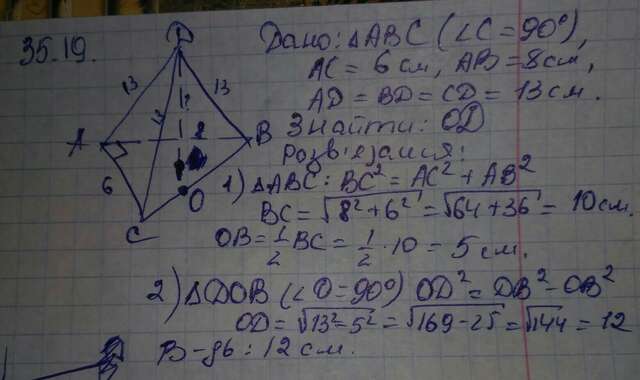 35.19.
D
Дано: △ABC (∠C = 90°),
AC = 6 см, AB = 8 см,
AD = BD = CD = 13 см.
Знайти: OD
Розв'язання:
13
13
A
B
6
O
C
1) △ABC: BC² = AC² + AB²
BC = √8²+6² = √64+36 = 10 см.
OB = 1/2 BC = 1/2 · 10 = 5 см.
2) △DOB (∠O = 90°) OD² = DB² - OB²
OD = √13²-5² = √169-25 = √144 = 12
В-дь: 12 см.